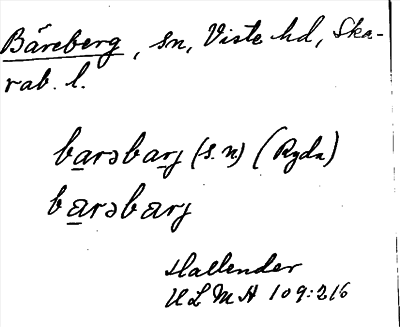 Bäreberg, sn, Viste hd, Ska-
rab. l.
barəbarj (s. n) (Ryda)
barəbarj
Hallender
ULMA 109:216